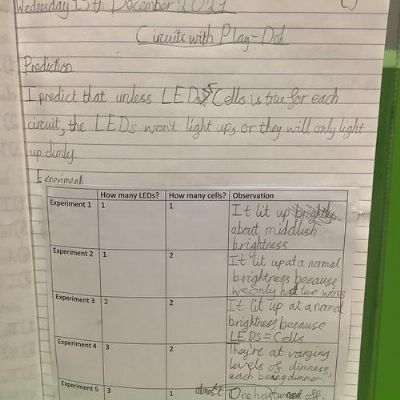 Wednesday 15th December 2021
Circuits with Play-Doh
Prediction
I predict that unless LEDs Cells is true for each
circuit, the LEDs won't light up, or they will only light
up dimly.
Experiment
How many LEDs? How many cells? Observation
Experiment 1 1 1 It lit up brightly
about middlish
brightness
Experiment 2 1 2 It lit up at a normal
brightness because
we only had two wires
Experiment 3 2 2 It lit up at a normal
brightness because
LEDS = Cells
Experiment 4 3 2 They're at varying
levels of dimness,
each being dimmer.
Experiment 5 3 1 almost One has turned off,